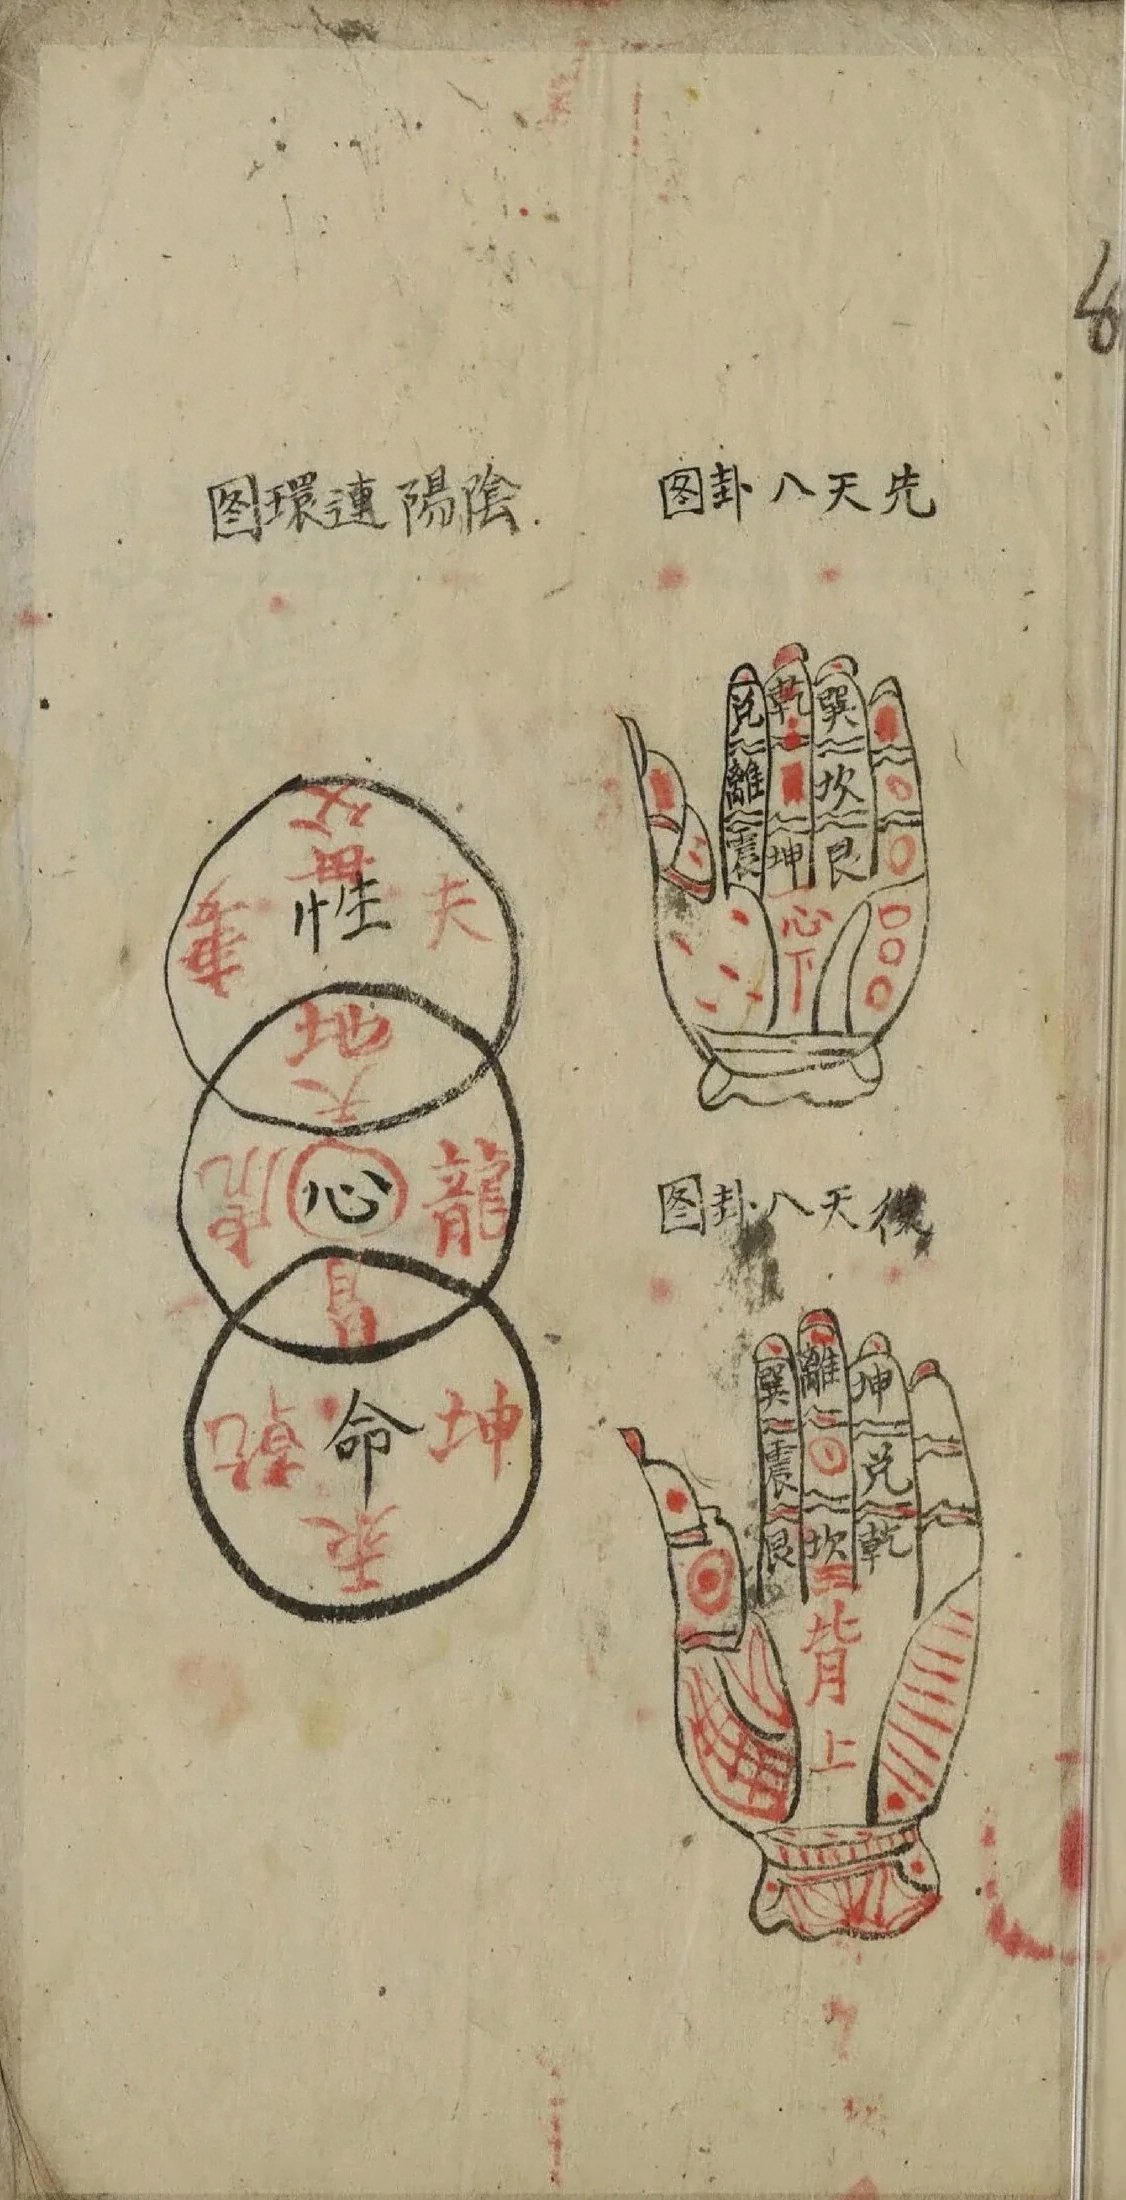 先天八卦图
巽坎艮
乾坤
兑離震
心下
後天八卦图
坤兑乾
離坎
巽震艮
背上
陰陽連環图
父母
夫性妻
地
天
龍心虎
坤命乾